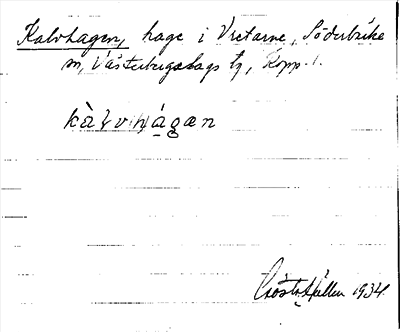 Kalvhagen, hage i Vretarne, Söderbärke
sn, Västerbergslags tg, Kopp. l.
kàlvhágæn
Gösta Källen 1934.